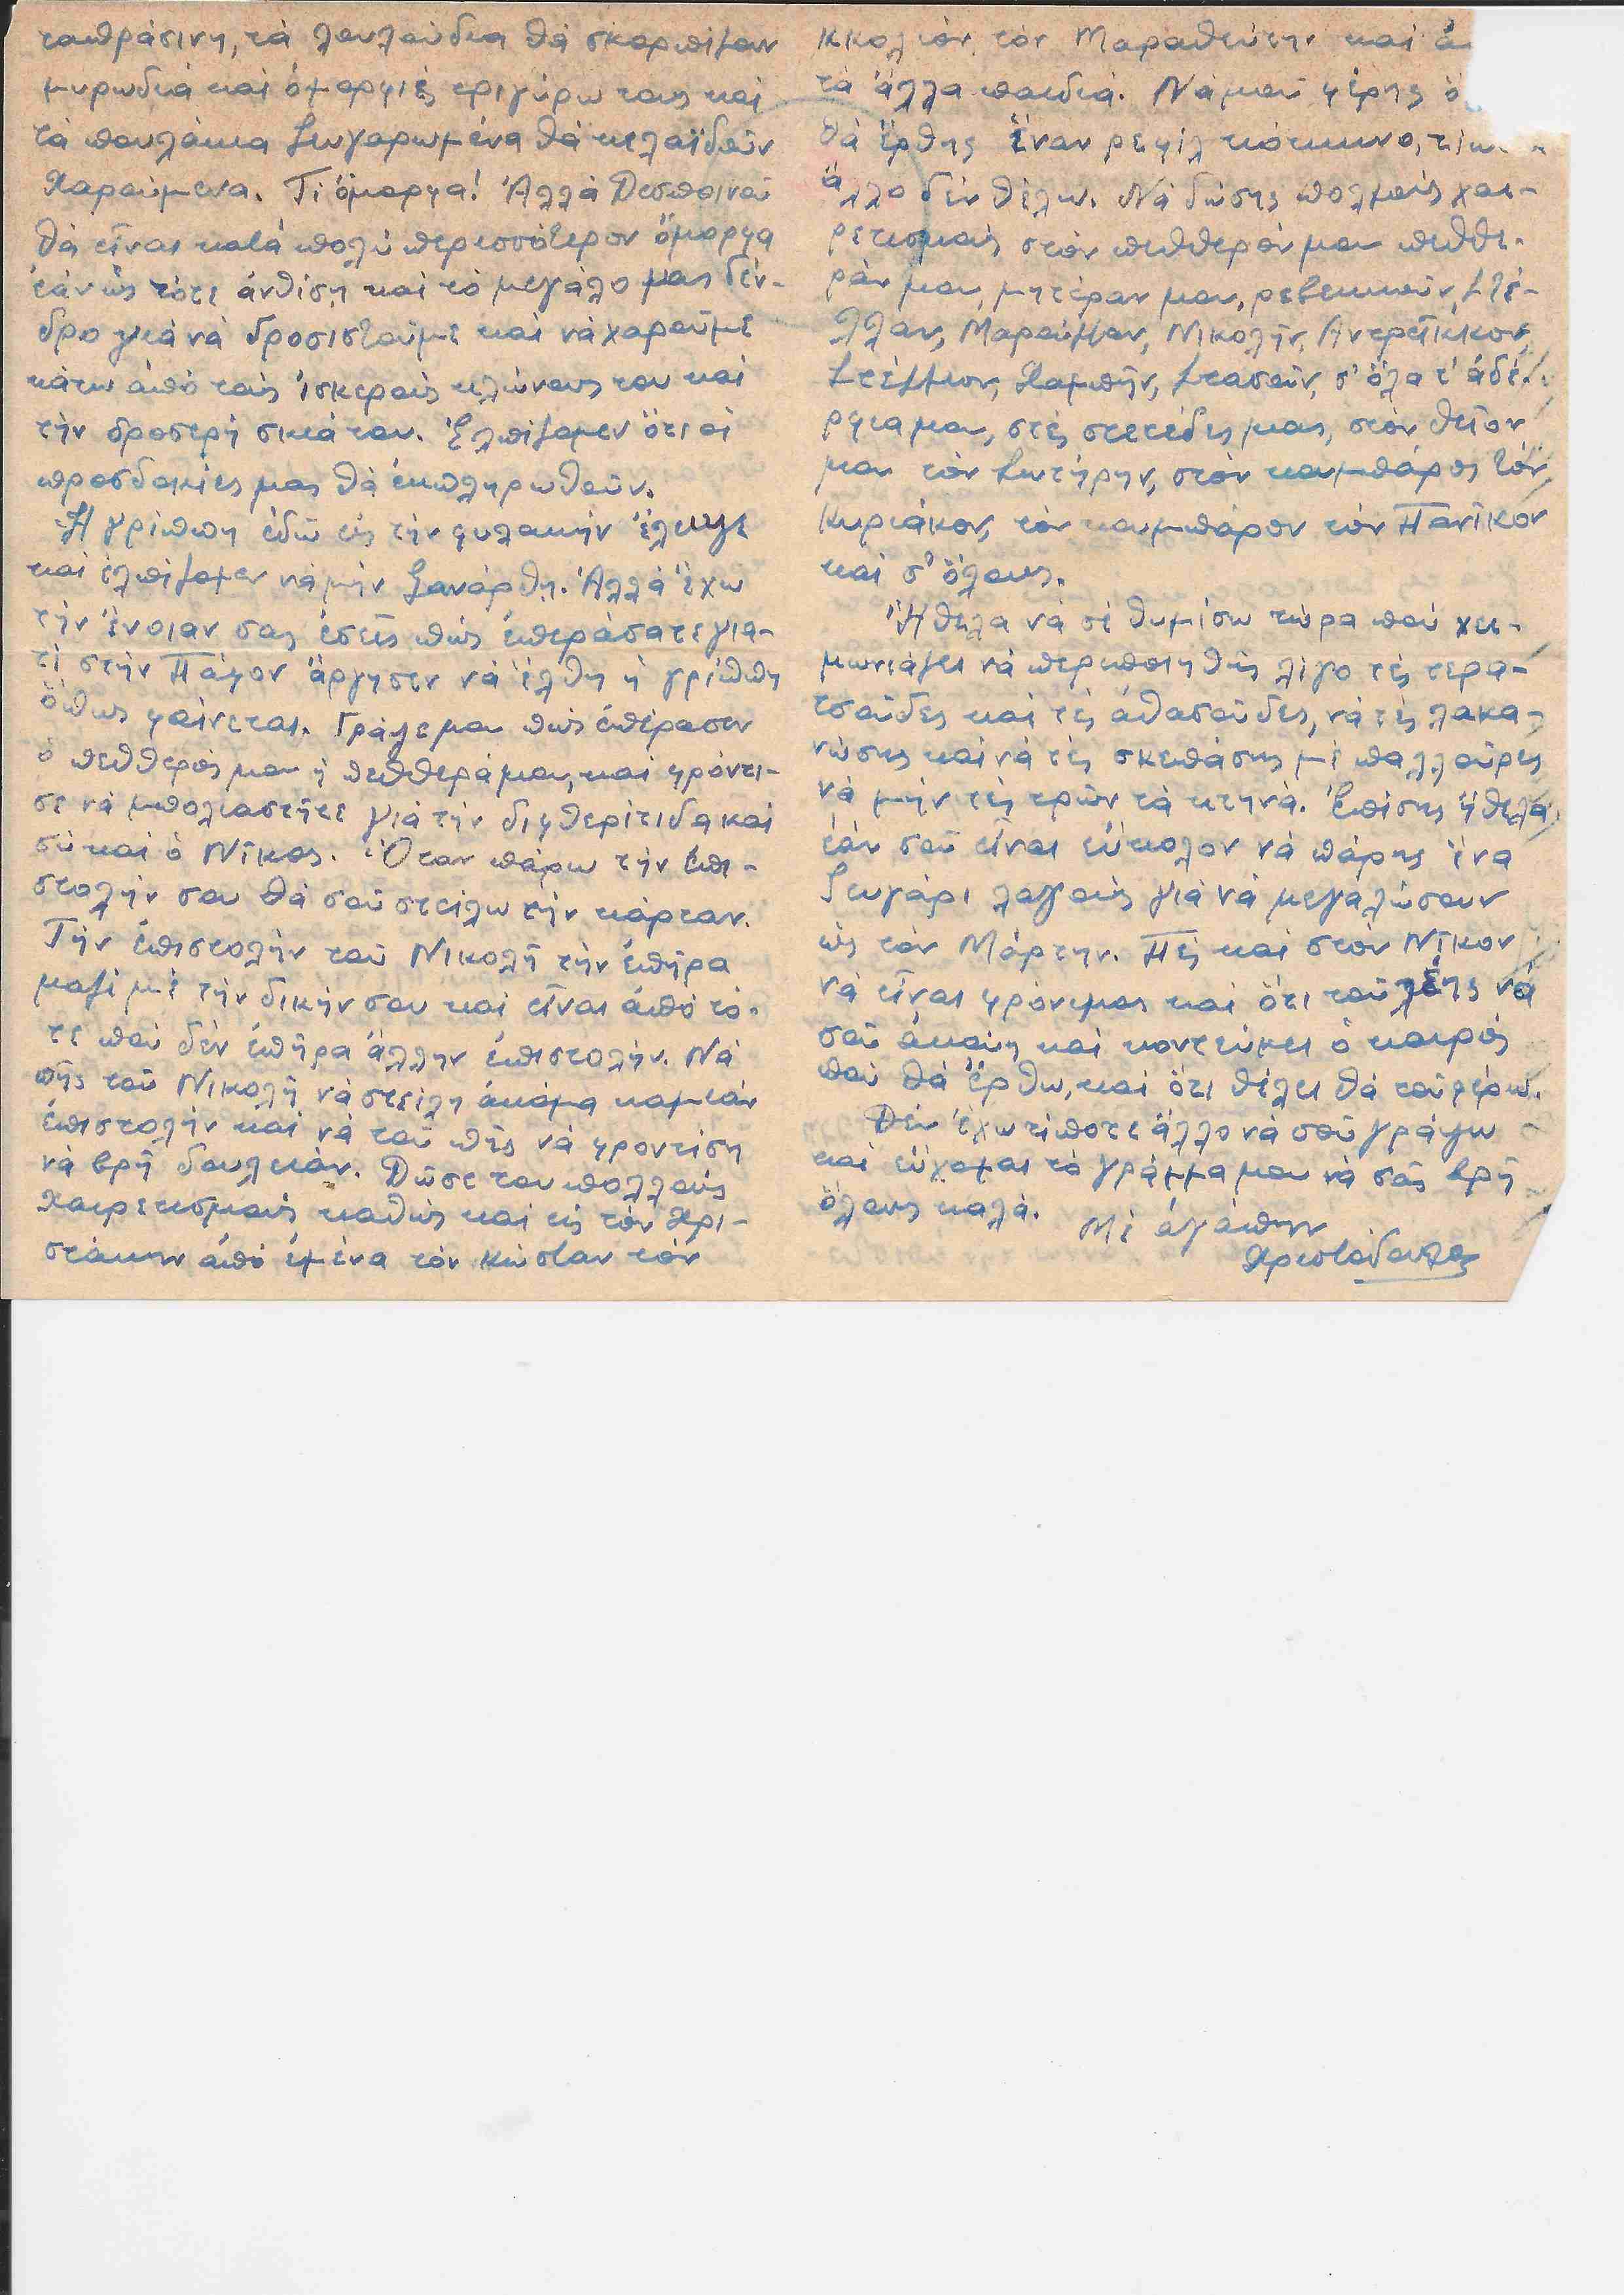 ταπράσινη, τά λουλούδια θά σκορπίζουν
μυρωδιά καί ὀμορφιές τριγύρω τους καί
τά πουλάκια ζευγαρωμένα θά κελαϊδοῦν
χαρούμενα. Τί ὄμορφα! Ἀλλά Δεσποινοῦ
θά εἶναι κατά πολύ περισσότερον ὄμορφα
ἐάν ὥς τότε ἀνθίση καί τό μεγάλο μας δέν-
δρο γιά νά δροσιστοῦμε καί νά χαροῦμε
κάτω ἀπό τούς ἰσκερούς κλώνους του καί
τήν δροσερή σκιά του. Ἐλπίζομεν ὅτι οἱ
προσδοκίες μας θά ἐκπληρωθοῦν.
Ἡ γρίππη ἐδῶ εἰς τήν φυλακήν ἔλειψε
καί ἐλπίζομεν νά μήν ξανάρθη. Ἀλλά ἔχω
τήν ἔνοιαν σας ἐσεῖς πῶς ἐπεράσατε για-
τί στήν Πάφον ἄργησεν νά ἔλθη ἡ γρίππη
ὅπως φαίνεται. Γράψε μου πῶς ἐπέρασεν
ὁ πεθθερός μου ἡ πεθθερά μου, καί φρόντι-
σε νά μπολιαστῆτε γιά τήν διφθερίτιδα καί
σύ καί ὁ Νῖκος. Ὅταν πάρω τήν ἐπι-
στολήν σου θά σοῦ στείλω τήν κάρταν.
Τήν ἐπιστολήν τοῦ Νικολῆ τήν ἐπῆρα
μαζί μέ τήν δικήν σου καί εἶναι ἀπό τό-
τε πού δέν ἐπῆρα ἄλλην ἐπιστολήν. Νά
πῆς τοῦ Νικολῆ νά στείλη ἀκόμα καμιάν
ἐπιστολήν καί νά τοῦ πῆς νά φροντίση
νά βρῆ δουλειάν. Δῶσε του πολλούς
χαιρετισμούς καθώς καί εἰς τόν Χρι-
στάκην ἀπό ἐμένα τόν Κώσταν τόν
Κκολιόν τόν Μαραθεύτην καί ἀ
τά ἄλλα παιδιά. Νά μοῦ φέρης ὅ
θά ἔρθης ἕναν ρεφίλ κόκκινο,
ἄλλο δέν θέλω. Νά δώσης πολλούς χαι-
ρετισμούς στόν πεθθερόν μου πεθθε-
ράν μου, μητέραν μου, ρεβεκκοῦν, Στέ-
λλαν, Μαροῦλλαν, Νικολῆν, Ἀντρεΐκκον,
Στέλλιον, Χαμπῆν, Στασοῦν, σ' ὅλα τ' ἀδέ
ρφια μου, στές στετέδες μας, στόν θεῖον
μου τόν Σωτήρην, στόν κουμπάρος τόν
Κυριάκον, τόν κουμπάρον τόν Πανῖκον
καί σ' ὅλους.
Ἤθελα νά σέ θυμίσω τώρα πού χει-
μωνιάζει νά περιποιηθῆς λίγο τές τερα-
τσοῦδες καί τές ἀθασοῦδες, νά τές λακα-
νώσης καί νά τές σκεπάσης μέ παλλοῦρες
νά μήν τές τρῶν τά κτηνά. Ἐπίσης ἤθελα
ἐάν σοῦ εἶναι εὔκολον νά πάρης ἕνα
ζευγάρι λαγούς γιά νά μεγαλώσουν
ὥς τόν Μάρτην. Πές καί στόν Νῖκον
νά εἶναι φρόνιμος καί ὅτι τοῦ λέης νά
σοῦ ἀκούη καί κοντεύκει ὁ καιρός
πού θά ἔρθω, καί ὅτι θέλει θά τοῦ φέρω.
Δέν ἔχω τίποτε ἄλλο νά σοῦ γράψω
καί εὔχομαι τό γράμμα μου νά σᾶς βρῆ
ὅλους καλά.
Μέ ἀγάπην
Χριστόδουλος